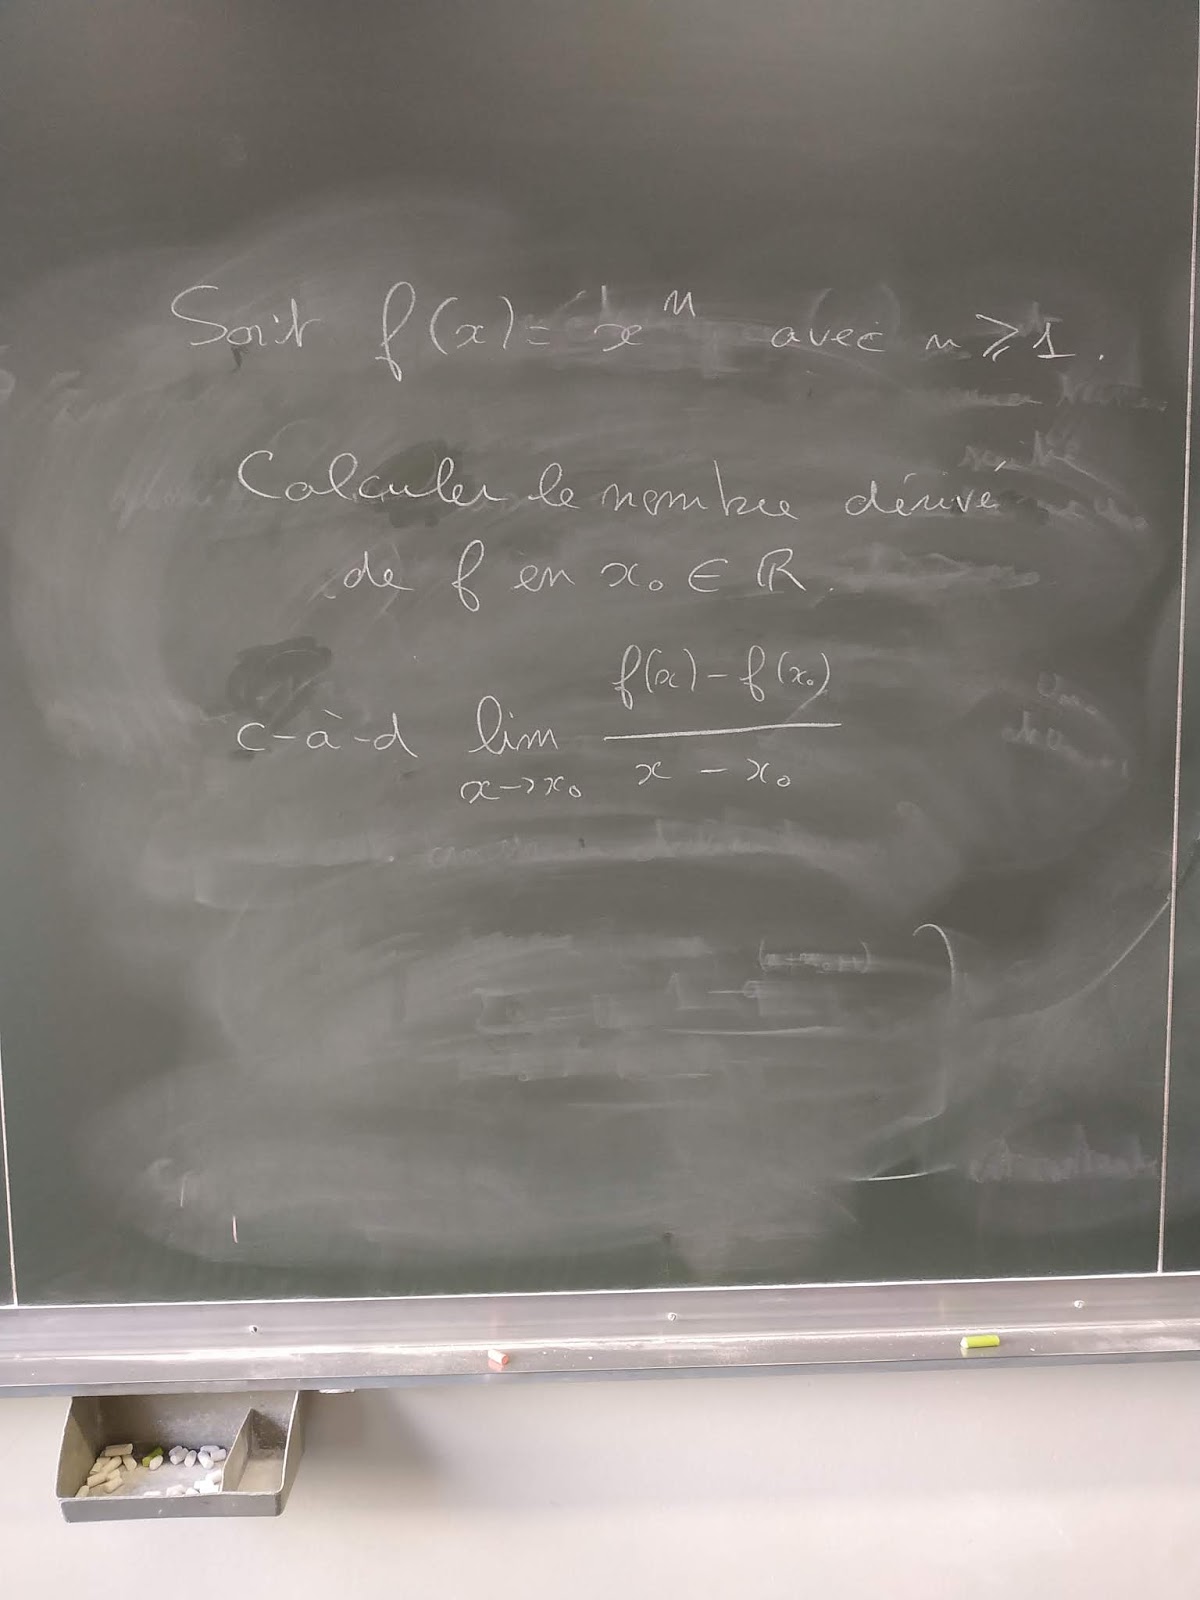 Soit f(x) = xⁿ avec n ⩾ 1.
Calculer le nombre dérivé
de f en x₀ ∈ ℝ.
c-à-d lim x→x₀ (f(x) - f(x₀)) / (x - x₀)